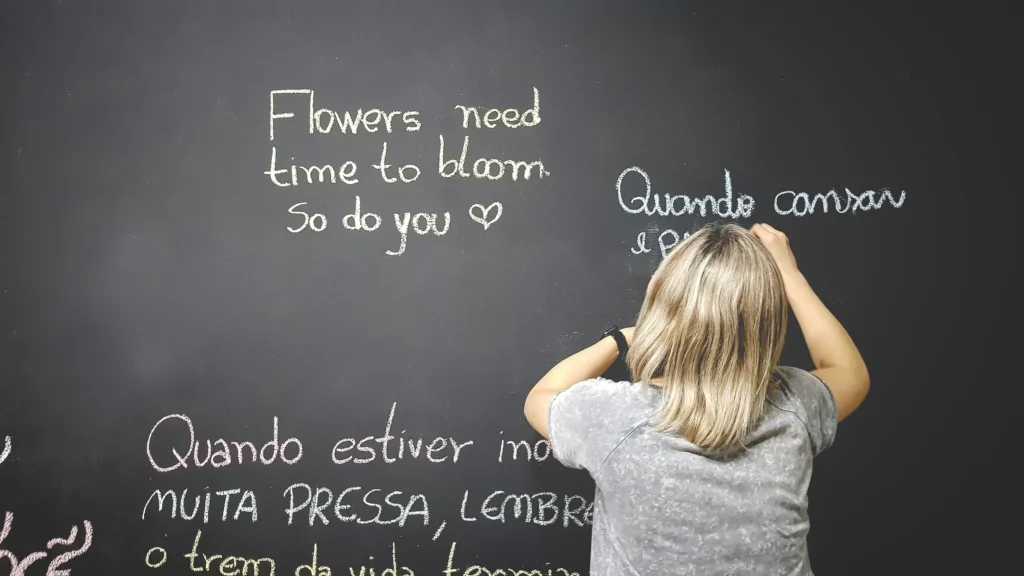 Flowers need
time to bloom
So do you ♡
Quando cansar
e
Quando estiver
MUITA PRESSA, LEMBRE
o trem da vida